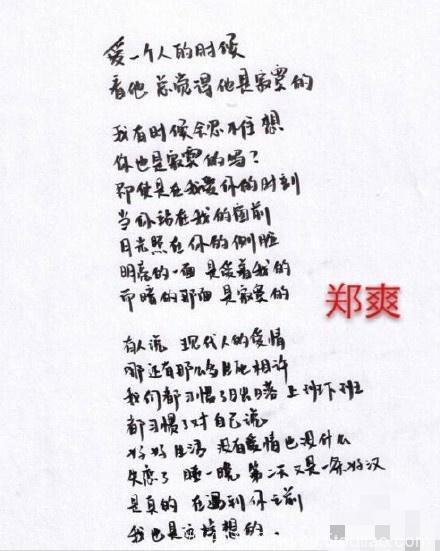 爱一个人的时候
看他总觉得他是寂寞的
我有时候会忍不住想
你也是寂寞的吗？
即使是在我爱你的时刻
当你站在我的窗前
月光照在你的侧脸
明亮的一面是笑着我的
而暗的那面是寂寞的
郑爽
有人说 现代人的爱情
哪还有那么多生死相许
我们都习惯了日出日落 上班下班
都习惯了对自己说
好好生活 没有爱情也没什么
失恋了 睡一晚 第二天又是一条好汉
是真的 在遇到你之前
我也是这样想的.